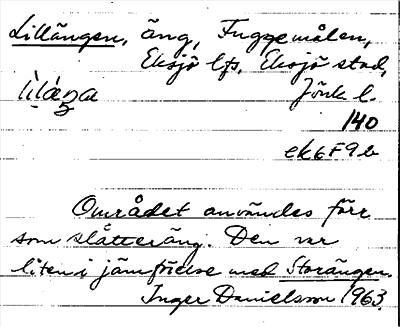 Lillängen, äng, Fuggemålen,
Eksjö lfs, Eksjö stad,
Jönk l.
140
ek 6F9b
Området användes förr
som slåtteräng. Den var
liten i jämförelse med Storängen.
Inger Danielsson 1963.